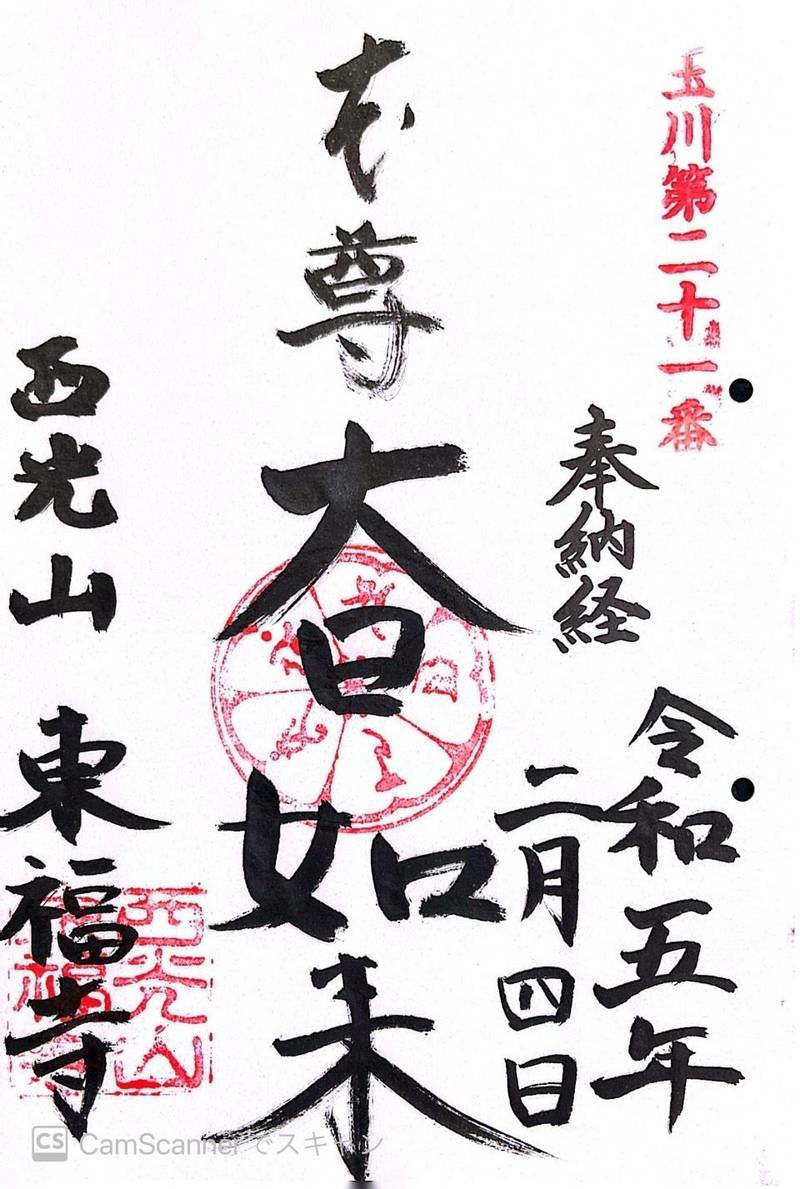 玉川第二十一番
奉納経
令和五年
二月四日
本尊
大日如来
西光山 東福寺
西光山
CamScannerでスキャン